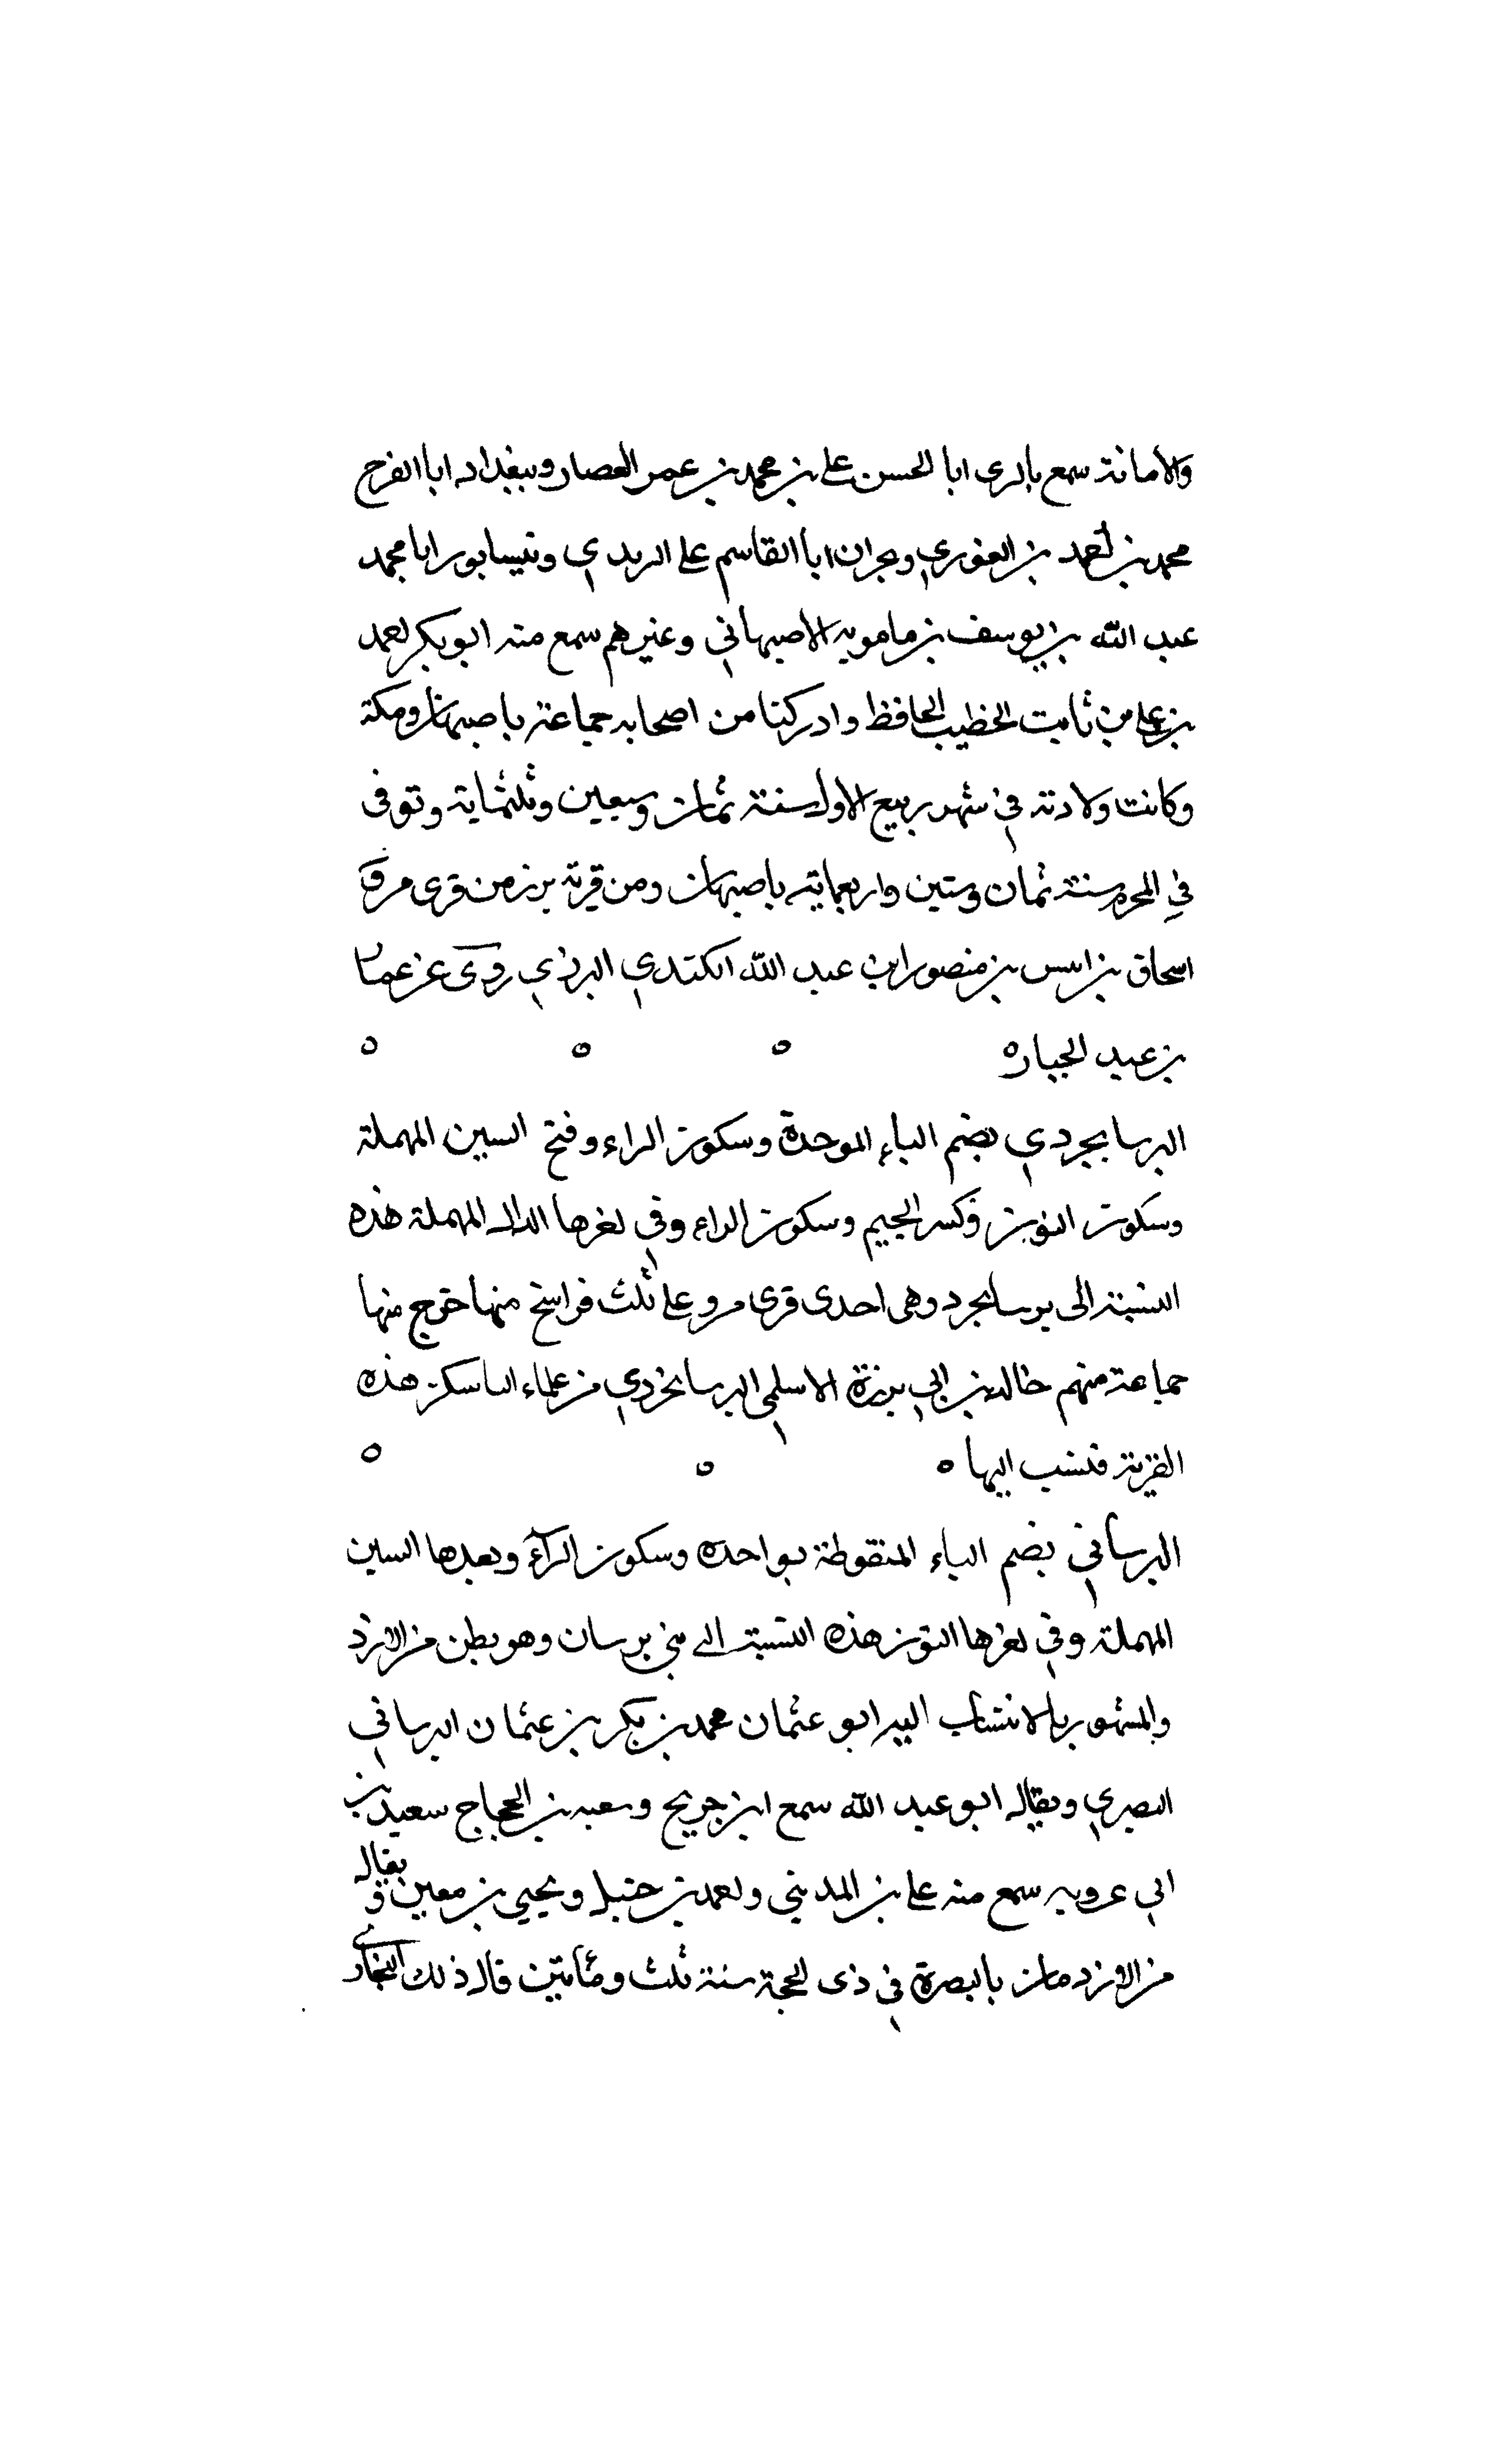 والامانة سمع بالرى ابا الحسن على بن محمد بن عمر القصار وببغداد ابا الفرج
محمد بن احمد بن الغوري وبحران ابا القاسم على الزيدي وبنيسابور ابا محمد
عبد الله بن يوسف بن مامويه الاصبهاني وغيرهم سمع منه ابو بكر احمد
بن على بن ثابت الخطيب الحافظ وادركنا من اصحابه جماعة باصبهان ومكة
وكانت ولادته في شهر ربيع الاول سنة ثمان وسبعين وثلثماية وتوفى
في المحرم سنة ثمان وستين واربعماية باصبهان ومن قرية برز من قرى مرو
اسحاق بن ابن منصور ابن عبد الله الكندي البرزي روى عن
بن عبد الجبار ه ه ه ه
البرسانجردي بضم الباء الموحدة وسكون الراء وفتح السين المهملة
وسكون النون وكسر الجيم وسكون الراء وفي اخرها الدال المهملة هذه
النسبة الى برسانجرد وهى احدى قرى مرو على ثلث فراسخ منها خرج منها
جماعة منهم خالد بن ابي برزة الاسلمى البرسانجردي من علماء سكن هذه
القرية فنسب اليها ه ه ه
البرساني بضم الباء المنقوطة بواحده وسكون الراء وبعدها السين
المهملة وفي اخرها النون هذه النسبة الى بني برسان وهو بطن من الازد
والمشهور بالانتساب اليه ابو عثمان محمد بن بكر بن عثمان البرساني
البصري ويقال ابو عبد الله سمع ابن جريج وشعبه بن الحجاج سعيد بن
ابي عروبه سمع منه على بن المديني واحمد بن حنبل ويحيى بن معين ويقال
من الازد مات بالبصرة في ذى الحجة سنة ثلث ومائتين قال ذلك البخارى